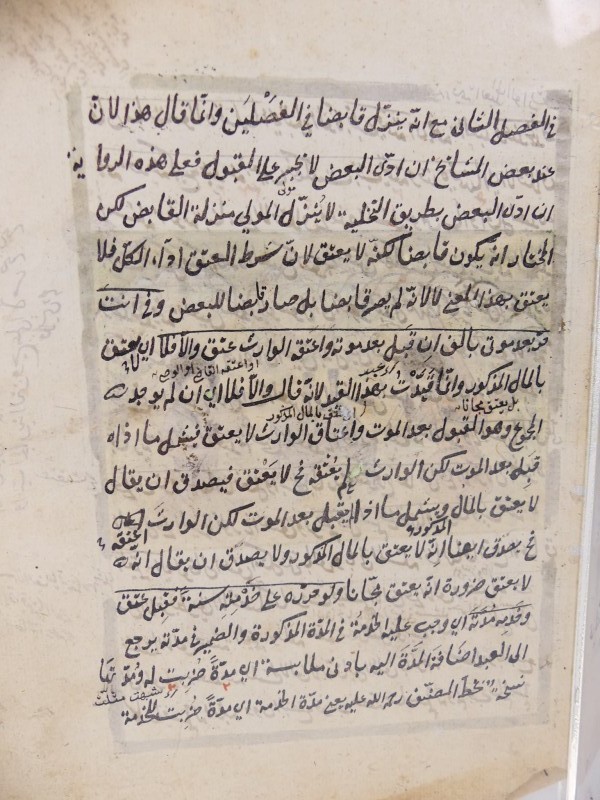 في الفصل الثاني مع انه ينزل قابضا في الفصلين وانما قال هذا لان
عند بعض المشايخ ان ادى البعض لا يجبر على القبول فعلى هذه الرواية
ان ادى البعض بطريق التخلية لا ينزل المولى منزلة القابض لكن
المختار انه يكون قابضا لكنه لا يعتق لان شرط العتق اداء الكل فلا
يعتق بهذا المعنى لا لانه لم يصر قابضا بل صار قابضا للبعض وفي انت
حر بعد موتي بالف ان قبل بعد موته واعتقه الوارث عتق والا فلا اي يعتق
او اعتقه القاضي او الوصي
بالمال المذكور وانما قيدت بهذا القيد لانه قال والا فلا اي ان لم يوجد
بل يعتق مجانا
اي يعتق بالمال المذكور
المجموع وهو القبول بعد الموت واعتاق الوارث لا يعتق فيشمل ما اذا
قبل بعد الموت لكن الوارث لم يعتقه فح لا يعتق فيصدق ان يقال
لا يعتق بالمال ويشمل ما اذا لم يقبل بعد الموت لكن الوارث اعتقه
المذكور
فح يصدق ايضا انه لا يعتق بالمال المذكور ولا يصدق ان يقال انه
لا يعتق ضرورة انه يعتق مجانا ولو حرره على خدمته سنة فقبل عتق
وخدمه مدته اي وجب عليه الخدمة في المدة المذكورة والضمير في مدته يرجع
الى العبد اضافة المدة اليه بادنى ملابسة اي مدة ضربت له
نسخة بخط المصنف رحمه الله عليه يعني مدة الخدمة اي مدة ضربت للخدمة